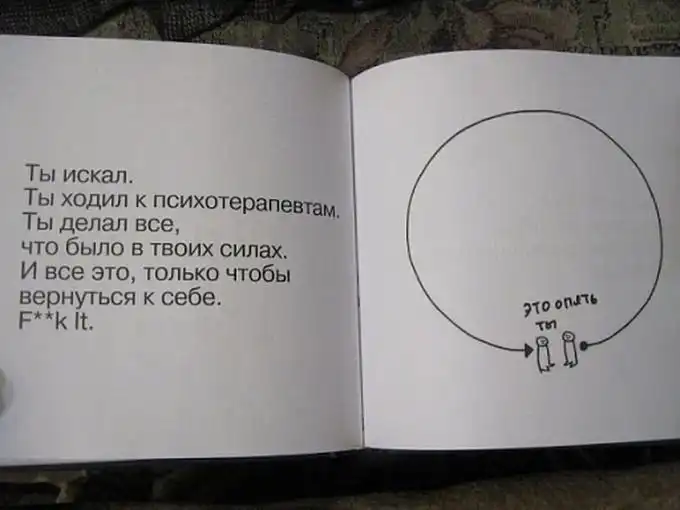 Ты искал.
Ты ходил к психотерапевтам.
Ты делал все,
что было в твоих силах.
И все это, только чтобы
вернуться к себе.
F**k It.
ЭТО ОПЯТЬ
ТЫ